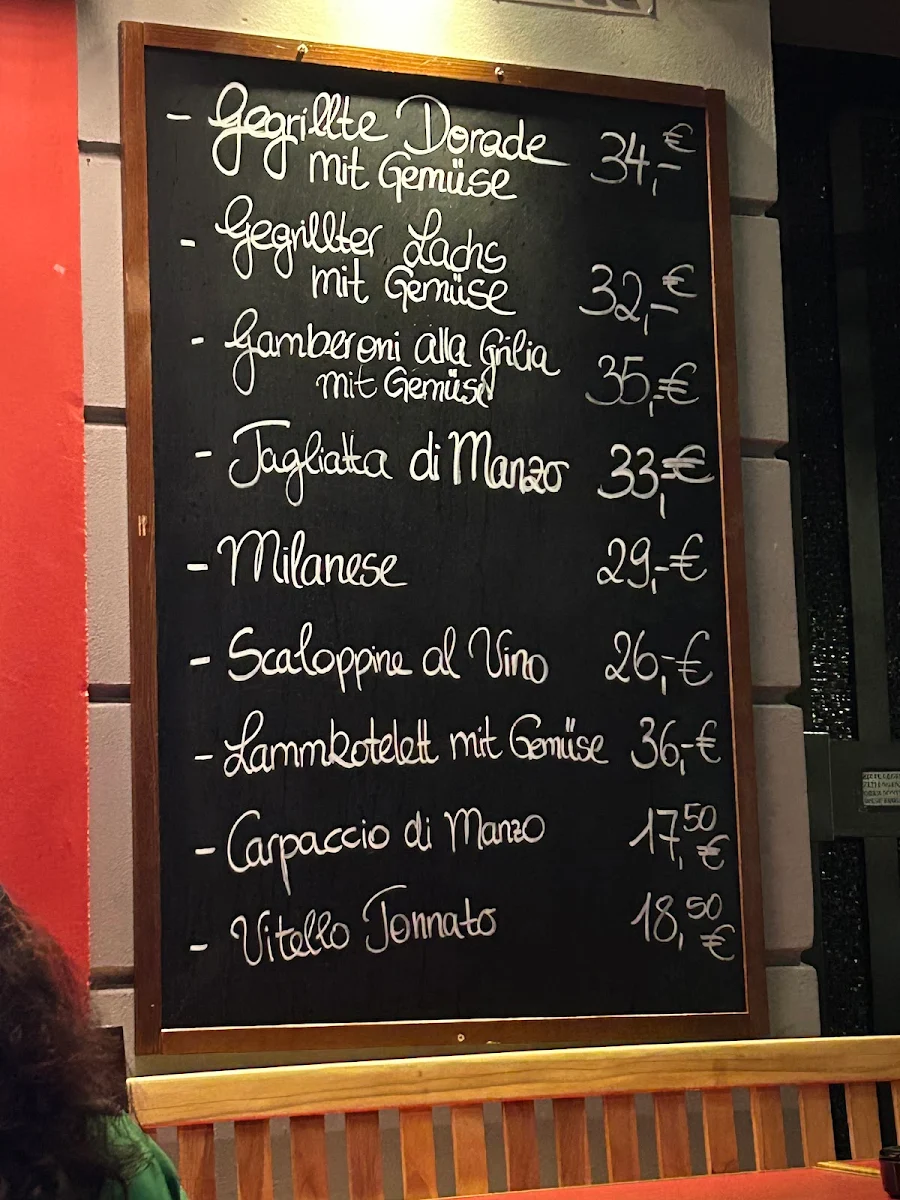 - Gegrillte Dorade
mit Gemüse 34,-€
- Gegrillter Lachs
mit Gemüse 32,-€
- Gamberoni alla Grilia
mit Gemüse 35,-€
- Tagliatta di Manzo 33,-€
- Milanese 29,-€
- Scaloppine al Vino 26,-€
- Lammkotelett mit Gemüse 36,-€
- Carpaccio di Manzo 17,50 €
- Vitello Tonnato 18,50 €